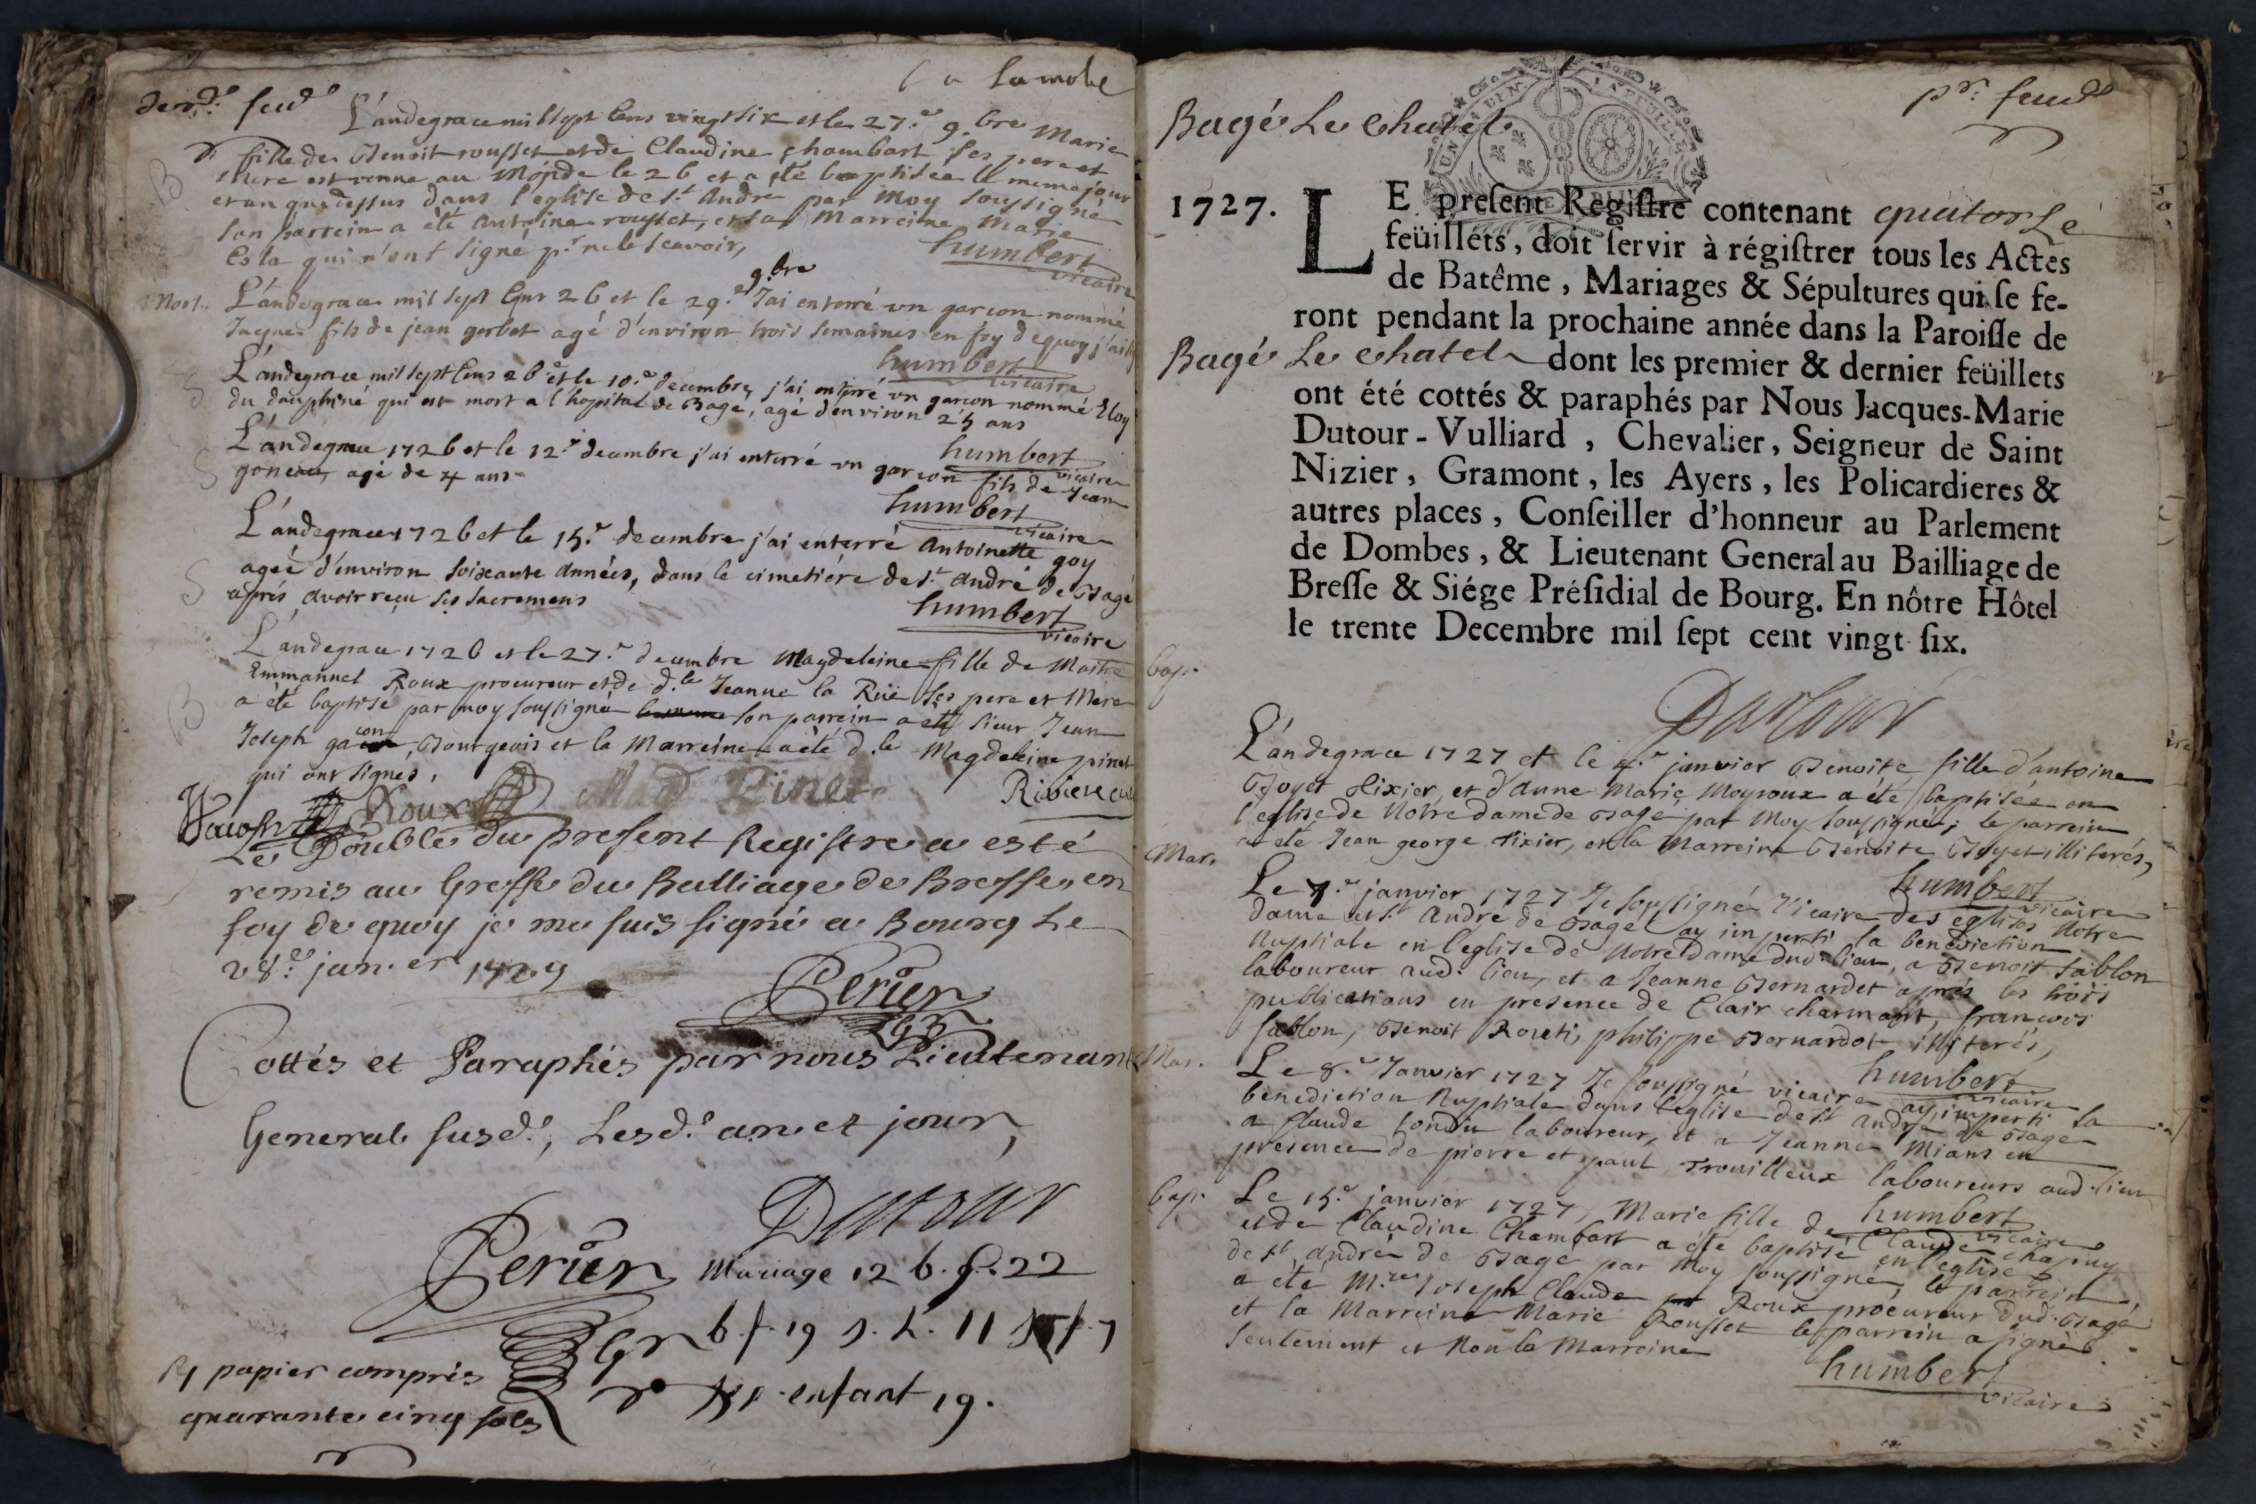 dern.r feud.
L'andegrace mil sept Cens vingt six et le 27.e 9.bre Marie
fille de Benoit rousset et de Claudine Chambart ses pere et
Mere est venue au Monde le 26 et a été baptisée le meme jour
et an que dessus dans l'eglise de s.t André par Moy soussigné
son parrein a été Antoine rousset, et sa Marreine Marie
qui n'ont signé p.r ne le sçavoir,
humbert
vicaire
Mort.
L'andegrace mil sept Cens 26 et le 29.e 9.bre J'ai enterré un garcon nommé
Jacques fils de jean gorbet agé d'environ trois semaines en foy dequoy j'ai
humbert
vicaire
S
L'andegrace mil sept Cens 26 et le 10.e decembre, j'ai enterré un garcon nommé Eloy
du dauphiné qui est mort a l'hopital de Bagé, agé d'environ 25 ans
humbert
vicaire
S
L'andegrace 1726 et le 12.e decembre j'ai enterré un garcon fils de Jean
agé de 4 ans
humbert
vicaire
S
L'andegrace 1726 et le 15.e decembre j'ai enterré Antoinette goy
ageé d'environ soixante Années, dans le cimetiére de s.t André de Bagé
aprés avoir reçu ses sacremens
humbert
vicaire
B
L'andegrace 1726 et le 27.e decembre Magdeleine fille de Maitre
Emmanuel Roux procureur et de d.le Jeanne la Rüe ses pere et Mere
a été baptisé par moy soussigné son parrein a été sieur Jean
Joseph gacon, Bourgeois et la Marreine a été d.le Magdeleine pinet
qui ont signés,
Roux Mad Pinet Riviere
Le Double du present Registre a esté
remis au Greffe du Balliage de Bresse, en
foy de quoy je me suis signé a Bourg Le
28.e jan.er 1729
Perier
Cottés et Paraphés par nous Lieutenant
General susd., Lesd. an et jour,
Dutour
Perier
Mariage 12 b. g. 22
b. f. 19 s. h. 11 s. f. 7
enfant 19.
papier compris
quarante cinq sols
pr. feud.
Bagé Le Chatel
1727.
LE preſent Regiſtre contenant quatorse
feüillets, doit ſervir à régiſtrer tous les Actes
de Batême, Mariages & Sépultures qui ſe fe-
ront pendant la prochaine année dans la Paroiſſe de
Bagé Le Chatel dont les premier & dernier feüillets
ont été cottés & paraphés par Nous Jacques-Marie
Dutour-Vulliard, Chevalier, Seigneur de Saint
Nizier, Gramont, les Ayers, les Policardieres &
autres places, Conſeiller d'honneur au Parlement
de Dombes, & Lieutenant General au Bailliage de
Breſſe & Siége Préſidial de Bourg. En nôtre Hôtel
le trente Decembre mil ſept cent vingt ſix.
Dutour
bap.
L'andegrace 1727 et le 4.e janvier Benoite fille d'antoine
Boyet tixier, et d'Anne Marie Moyroux a été baptisée en
l'eglise de Notre dame de Bagé par Moy soussigné; le parrein
a été Jean george tixier, et la Marreine Benoite Boyet illiterés,
humbert
vicaire
Mar.
Le 7.e janvier 1727 Je soussigné Vicaire des eglises Notre
dame et s.t André de Bagé ay imperti la benediction
Nuptiale en l'eglise de Notre Dame dud. lieu, a Benoit sablon
laboureur aud. lieu, et a Jeanne Bernardet aprés les trois
publications en presence de Clair charmont, francois
sablon, Benoit Roueti, philippe Bernardet illiterés,
humbert
vicaire
Mar.
Le 8.e Janvier 1727 Je soussigné vicaire ay imperti la
benediction Nuptiale dans l'eglise de s.t André de Bagé
a Claude tondu laboureur, et a Jeanne Mians en
presence de pierre et paul Trouilleux laboureurs aud. lieu
humbert
vicaire
bap.
Le 15.e janvier 1727, Marie fille de Claude chapuy
et de Claudine Chambart a été baptisé en l'eglise
de s.t André de Bagé par Moy soussigné, le parrein
a été M.re Joseph Claude Roux procureur dud. Bagé
et la Marreine Marie Rousset le parrein a signé
seulement et Non la Marreine
humbert
vicaire